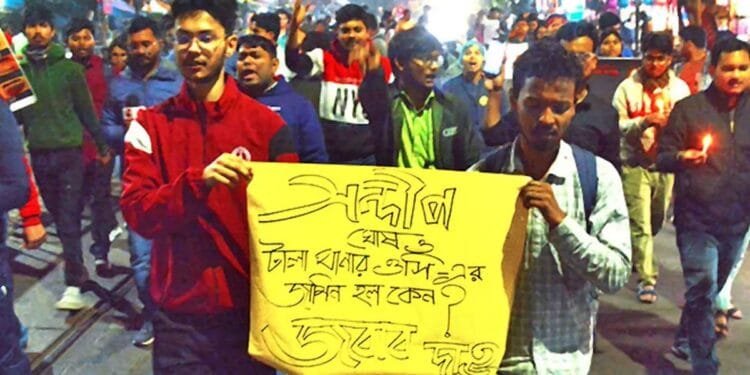 সন্দীপ
ঘোষ ও
টালা থানার ওসি-এর
জামিন হল কেন?
জবাব দাও
NYC